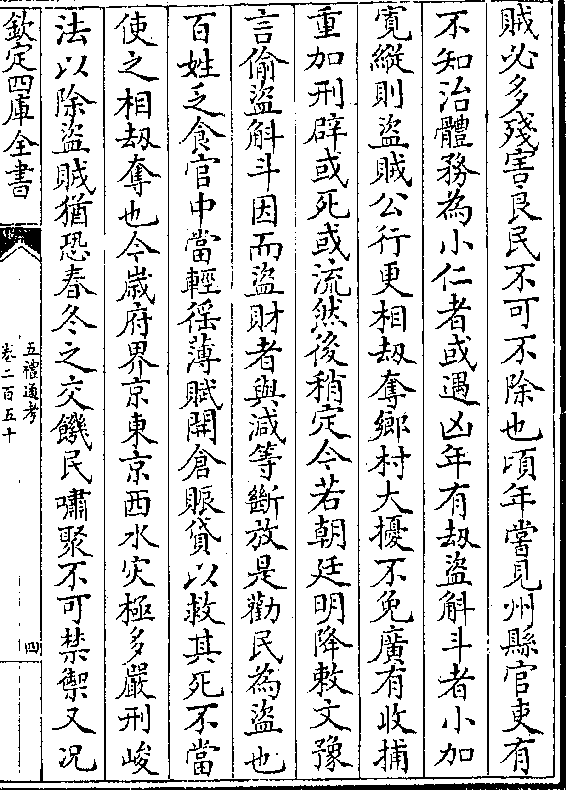 賊必多殘害良民不可不除也頃年嘗見州縣官吏有
不知治體務為小仁者或遇凶年有刼盜斛斗者小加
寛縱則盜賊公行更相刼奪鄉村大擾不免廣有收捕
重加刑辟或死或流然後稍定今若朝廷明降敕文豫
言偷盜斛斗因而盜財者與減等斷放是勸民為盜也
百姓乏食官中當輕徭薄賦開倉賑貸以救其死不當
使之相刼奪也今嵗府界京東京西水災極多嚴刑峻
法以除盜賊猶恐春冬之交饑民嘯聚不可禁禦又况
欽定四庫全書
五禮通考
卷二百五十
四